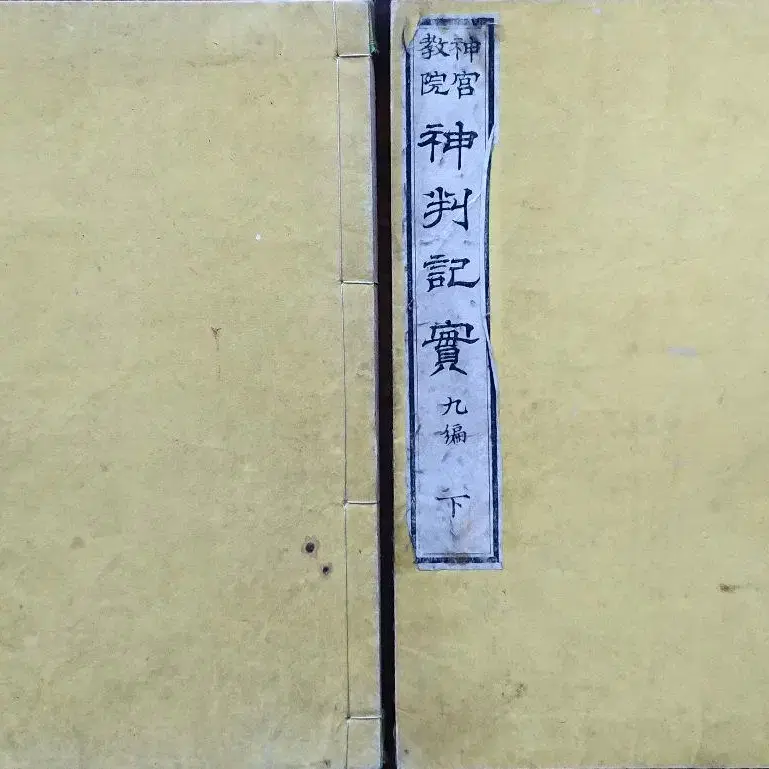 神宮
教院
神判記實
九編
下